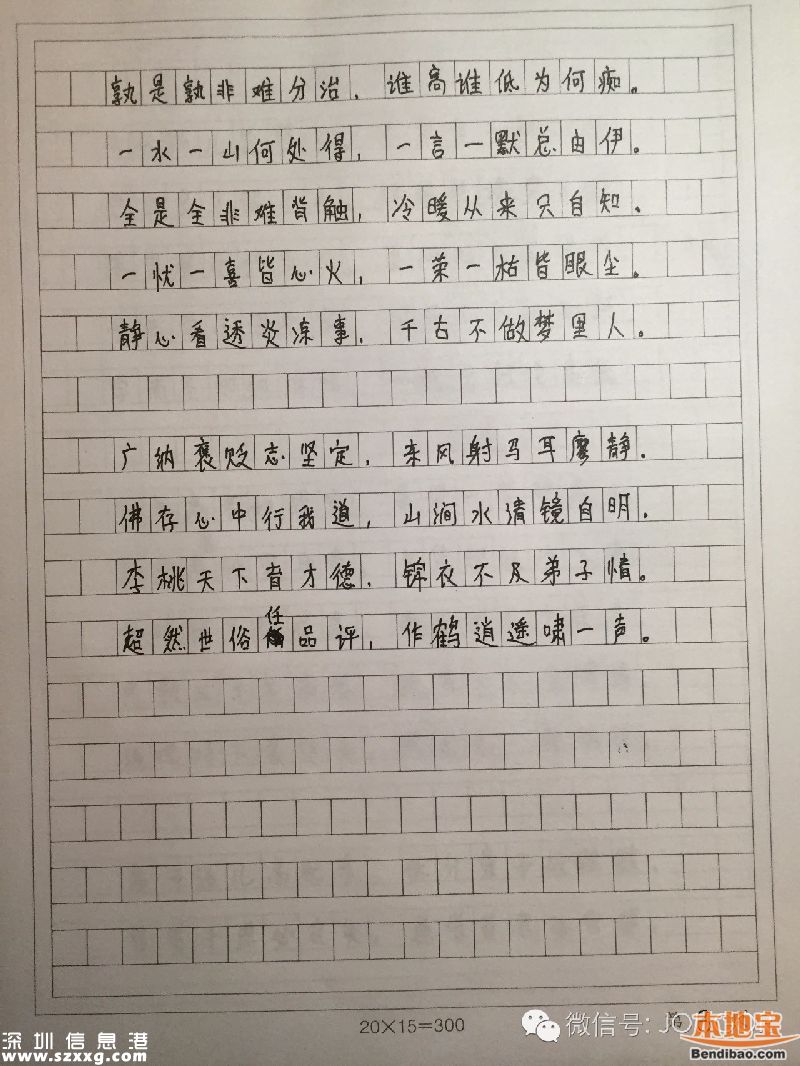 孰是孰非难分治，谁高谁低为何痴。
一水一山何处得，一言一默总由伊。
全是全非难背触，冷暖从来只自知。
一忧一喜皆心火，一荣一枯皆眼尘。
静心看透炎凉事，千古不做梦里人。
广纳褒贬志坚定，来风射马耳廖静。
佛存心中行我道，山涧水清镜自明。
李桃天下育才德，锦衣不及弟子情。
超然世俗任品评，作鹤逍遥啸一声。
20×15=300
微信号: JO
深圳信息港
www.szxxg.com
本地宝
Bendibao.com